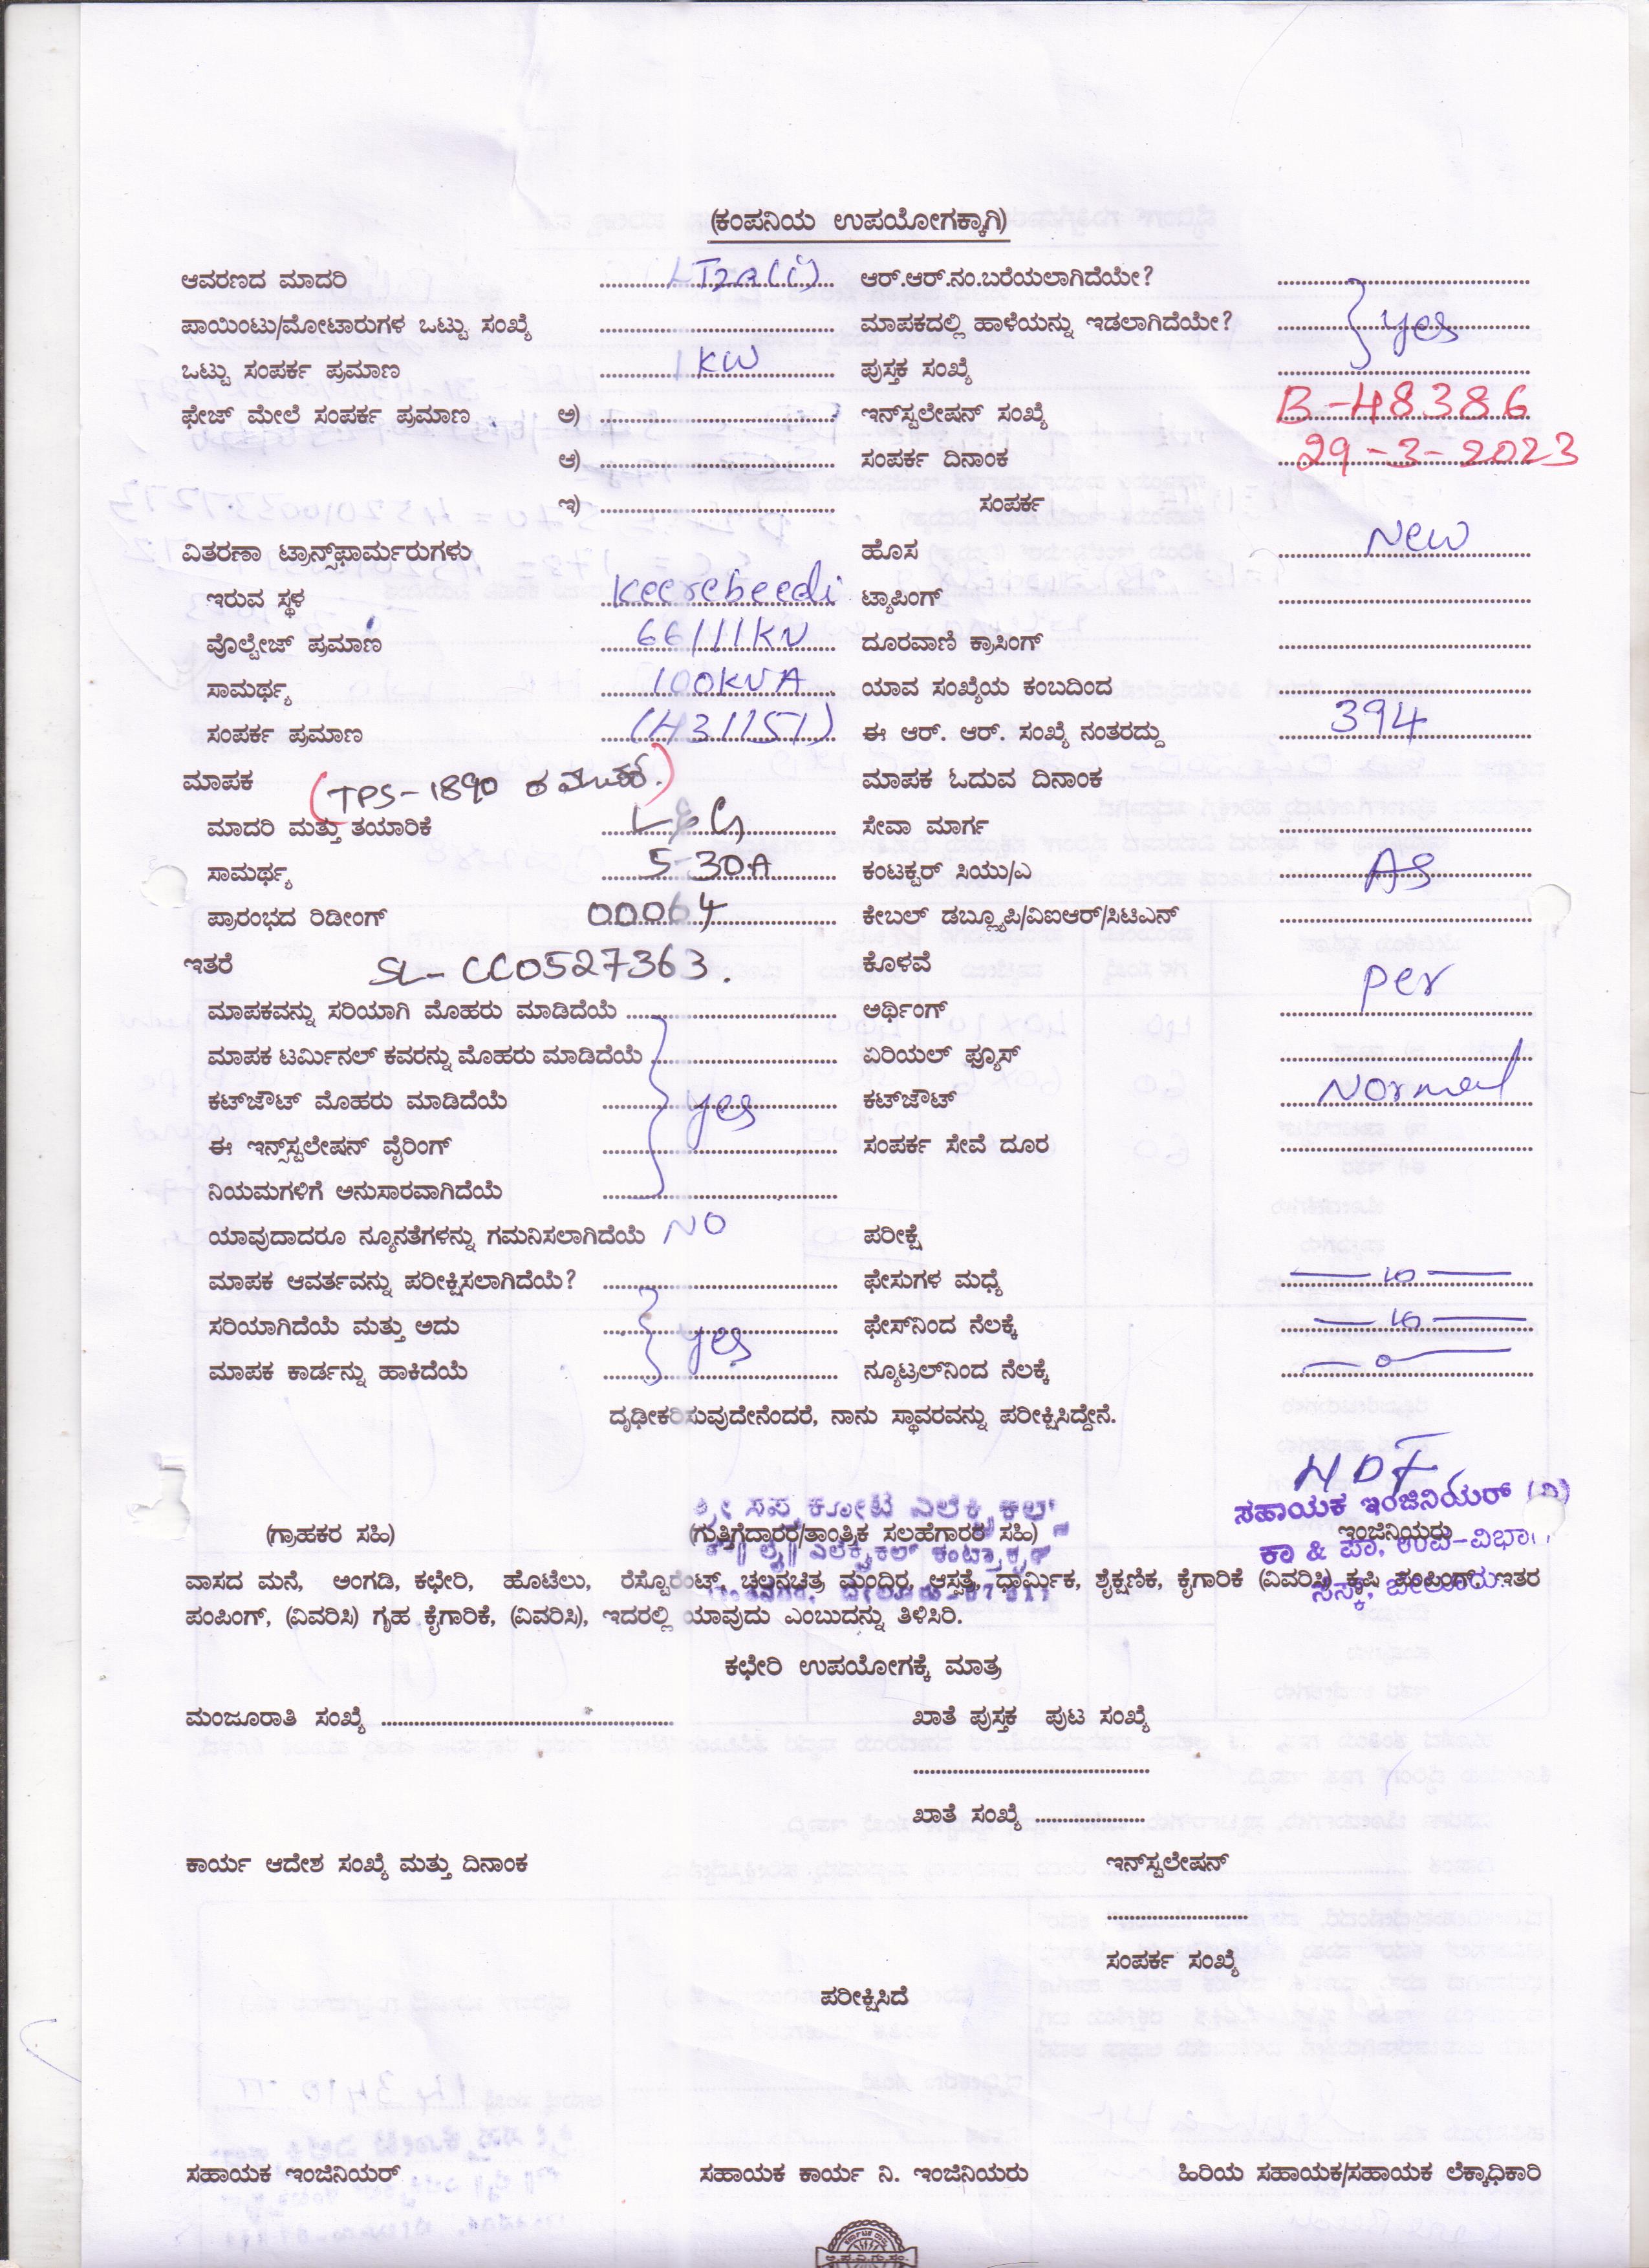 (ಕಂಪನಿಯ ಉಪಯೋಗಕ್ಕಾಗಿ)
ಆವರಣದ ಮಾದರಿ LT2A(i) ಆರ್.ಆರ್.ನಂ.ಬರೆಯಲಾಗಿದೆಯೇ?
ಪಾಯಿಂಟು/ಮೋಟಾರುಗಳ ಒಟ್ಟು ಸಂಖ್ಯೆ ಮಾಪಕದಲ್ಲಿ ಹಾಳೆಯನ್ನು ಇಡಲಾಗಿದೆಯೇ? yes
ಒಟ್ಟು ಸಂಪರ್ಕ ಪ್ರಮಾಣ 1KW ಪುಸ್ತಕ ಸಂಖ್ಯೆ
ಫೇಜ್ ಮೇಲೆ ಸಂಪರ್ಕ ಪ್ರಮಾಣ ಅ) ಇನ್‌ಸ್ಟಲೇಷನ್ ಸಂಖ್ಯೆ B-48386
ಆ) ಸಂಪರ್ಕ ದಿನಾಂಕ 29-3-2023
ಇ) ಸಂಪರ್ಕ
ವಿತರಣಾ ಟ್ರಾನ್ಸ್‌ಫಾರ್ಮರುಗಳು ಹೊಸ New
ಇರುವ ಸ್ಥಳ Keerebeedi ಟ್ಯಾಪಿಂಗ್
ವೊಲ್ಟೇಜ್ ಪ್ರಮಾಣ 66/11KV ದೂರವಾಣಿ ಕ್ರಾಸಿಂಗ್
ಸಾಮರ್ಥ್ಯ 100KVA ಯಾವ ಸಂಖ್ಯೆಯ ಕಂಬದಿಂದ
ಸಂಪರ್ಕ ಪ್ರಮಾಣ ಈ ಆರ್. ಆರ್. ಸಂಖ್ಯೆ ನಂತರದ್ದು 394
ಮಾಪಕ (TPS-1890 ಮಾಪಕ ಓದುವ ದಿನಾಂಕ
ಮಾದರಿ ಮತ್ತು ತಯಾರಿಕೆ L&G ಸೇವಾ ಮಾರ್ಗ
ಸಾಮರ್ಥ್ಯ 5-30A ಕಂಟಕ್ಟರ್ ಸಿಯು/ಎ AS
ಪ್ರಾರಂಭದ ರಿಡೀಂಗ್ 00064 ಕೇಬಲ್ ಡಬ್ಲ್ಯೂಪಿ/ವಿಐಆರ್/ಸಿಟಿಎನ್
ಇತರೆ SL-CC0527363. ಕೊಳವೆ
ಮಾಪಕವನ್ನು ಸರಿಯಾಗಿ ಮೊಹರು ಮಾಡಿದೆಯೆ ಅರ್ಥಿಂಗ್ per
ಮಾಪಕ ಟರ್ಮಿನಲ್ ಕವರನ್ನು ಮೊಹರು ಮಾಡಿದೆಯೆ ಏರಿಯಲ್ ಫ್ಯೂಸ್
ಕಟ್‌ಜೌಟ್ ಮೊಹರು ಮಾಡಿದೆಯೆ yes ಕಟ್‌ಜೌಟ್ Normal
ಈ ಇನ್ಸ್‌ಸ್ಟಲೇಷನ್ ವೈರಿಂಗ್ ಸಂಪರ್ಕ ಸೇವೆ ದೂರ
ನಿಯಮಗಳಿಗೆ ಅನುಸಾರವಾಗಿದೆಯೆ
ಯಾವುದಾದರೂ ನ್ಯೂನತೆಗಳನ್ನು ಗಮನಿಸಲಾಗಿದೆಯೆ NO ಪರೀಕ್ಷೆ
ಮಾಪಕ ಆವರ್ತವನ್ನು ಪರೀಕ್ಷಿಸಲಾಗಿದೆಯೆ? ಫೇಸುಗಳ ಮಧ್ಯೆ
ಸರಿಯಾಗಿದೆಯೆ ಮತ್ತು ಅದು yes ಫೇಸ್‌ನಿಂದ ನೆಲಕ್ಕೆ
ಮಾಪಕ ಕಾರ್ಡನ್ನು ಹಾಕಿದೆಯೆ ನ್ಯೂಟ್ರಲ್‌ನಿಂದ ನೆಲಕ್ಕೆ
ದೃಢೀಕರಿಸುವುದೇನೆಂದರೆ, ನಾನು ಸ್ಥಾವರವನ್ನು ಪರೀಕ್ಷಿಸಿದ್ದೇನೆ.
ಸಹಾಯಕ ಇಂಜಿನಿಯರ್ (ವಿ)
(ಗ್ರಾಹಕರ ಸಹಿ) (ಗುತ್ತಿಗೆದ್ದಾರರ/ತಾಂತ್ರಿಕ ಸಲಹೆಗಾರರ ಸಹಿ) ಇಂಜಿನಿಯರು
ಕಾ & ಪಾ. ಉಪ-ವಿಭಾಗ
ವಾಸದ ಮನೆ, ಅಂಗಡಿ, ಕಛೇರಿ, ಹೊಟೆಲು, ರೆಸ್ಟೊರೆಂಟ್, ಚಲನಚಿತ್ರ ಮಂದಿರ, ಆಸ್ಪತ್ರೆ, ಧಾರ್ಮಿಕ, ಶೈಕ್ಷಣಿಕ, ಕೈಗಾರಿಕೆ (ವಿವರಿಸಿ) ಕೃಷಿ ಪಂಪಿಂಗ್ ಇತರ
ಪಂಪಿಂಗ್, (ವಿವರಿಸಿ) ಗೃಹ ಕೈಗಾರಿಕೆ, (ವಿವರಿಸಿ), ಇದರಲ್ಲಿ ಯಾವುದು ಎಂಬುದನ್ನು ತಿಳಿಸಿರಿ.
ಕಛೇರಿ ಉಪಯೋಗಕ್ಕೆ ಮಾತ್ರ
ಮಂಜೂರಾತಿ ಸಂಖ್ಯೆ ಖಾತೆ ಪುಸ್ತಕ ಪುಟ ಸಂಖ್ಯೆ
ಖಾತೆ ಸಂಖ್ಯೆ
ಕಾರ್ಯ ಆದೇಶ ಸಂಖ್ಯೆ ಮತ್ತು ದಿನಾಂಕ ಇನ್‌ಸ್ಟಲೇಷನ್
ಸಂಪರ್ಕ ಸಂಖ್ಯೆ
ಪರೀಕ್ಷಿಸಿದೆ
ಸಹಾಯಕ ಇಂಜಿನಿಯರ್ ಸಹಾಯಕ ಕಾರ್ಯ ನಿ. ಇಂಜಿನಿಯರು ಹಿರಿಯ ಸಹಾಯಕ/ಸಹಾಯಕ ಲೆಕ್ಕಾಧಿಕಾರಿ